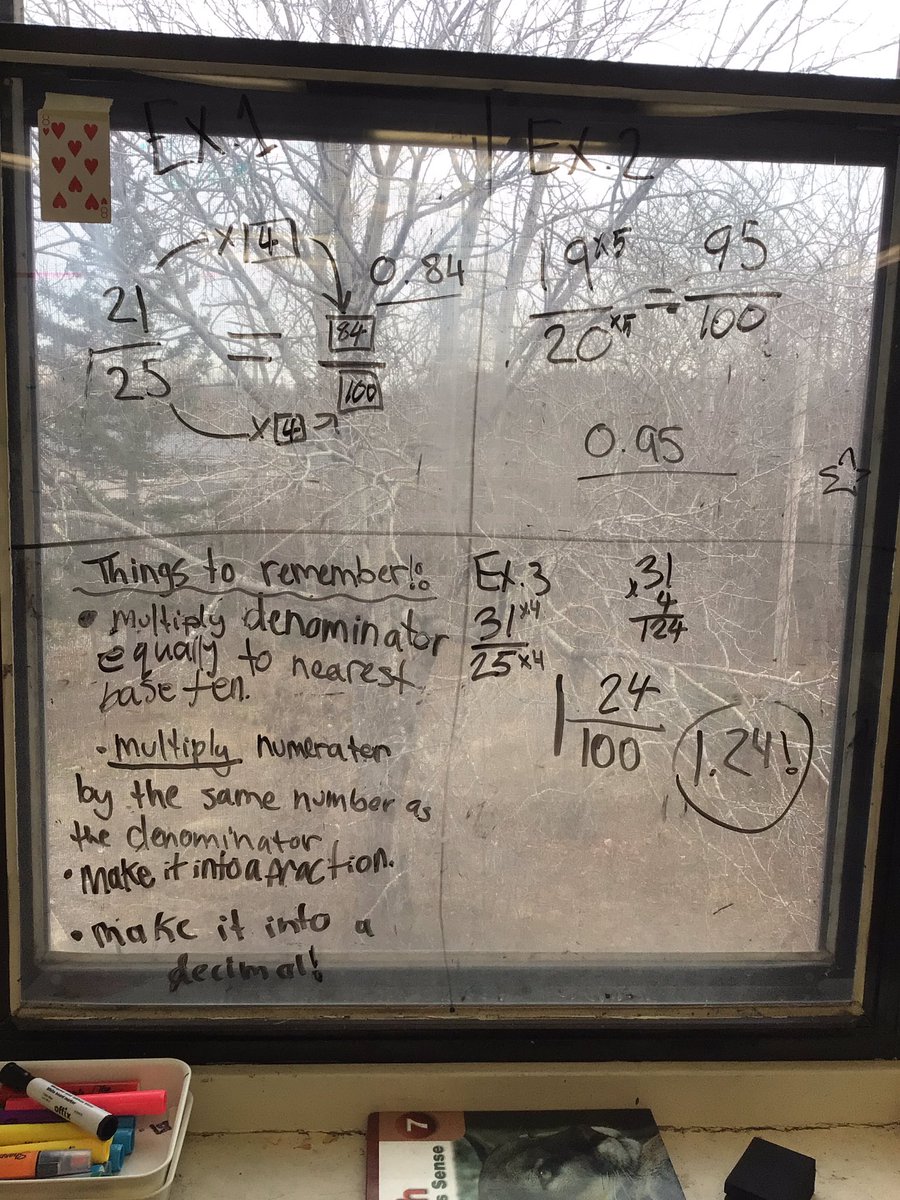 8
Ex.1
×4
0.84
21/25 = 84/100
×4
Ex.2
19×5/20×5 = 95/100
0.95
Things to remember!:
• Multiply denominator
equally to nearest
base ten.
• multiply numerator
by the same number as
the denominator
• Make it into a fraction.
• make it into a
decimal!
Ex.3
31×4
25×4
×31
4
124
1 24/100
1.24!
8
7
s Sense